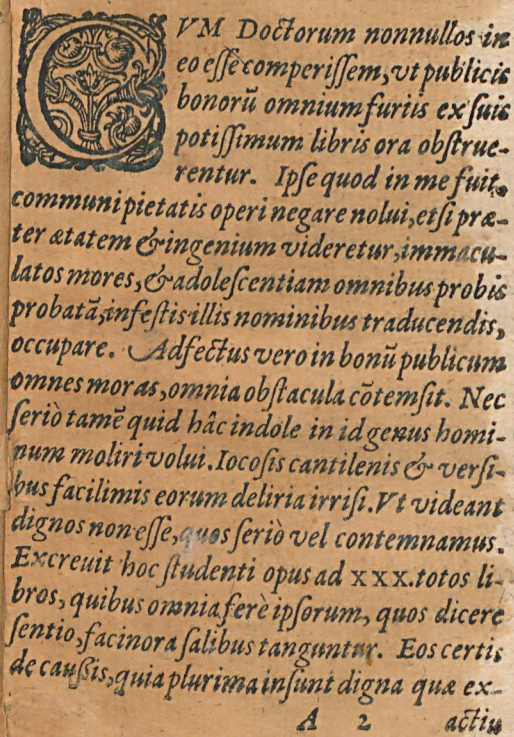 CVM Doctorum nonnullos in
eo eſſe comperiſſem, vt publicis
bonorū omnium furiis ex ſuis
potiſſimum libris ora obſtrue-
rentur. Ipſe quod in me fuit,
communi pietatis operi negare nolui, etſi præ-
ter ætatem & ingenium videretur, immacu-
latos mores, & adoleſcentiam omnibus probis
probatā, infeſtis illis nominibus traducendis,
occupare. Adfectus vero in bonū publicum
omnes moras, omnia obſtacula cōtemſit. Nec
ſeriò tamē quid hâc indole in id genus homi-
num moliri volui. Iocoſis cantilenis & verſi-
bus facilimis eorum deliria irriſi. Vt videant
dignos non eſſe, quos ſeriò vel contemnamus.
Excreuit hoc ſtudenti opus ad XXX. totos li-
bros, quibus omnia ferè ipſorum, quos dicere
ſentio, facinora ſalibus tanguntur. Eos certis
de cauſſis, quia plurima inſunt digna quæ ex-
A 2 actiu